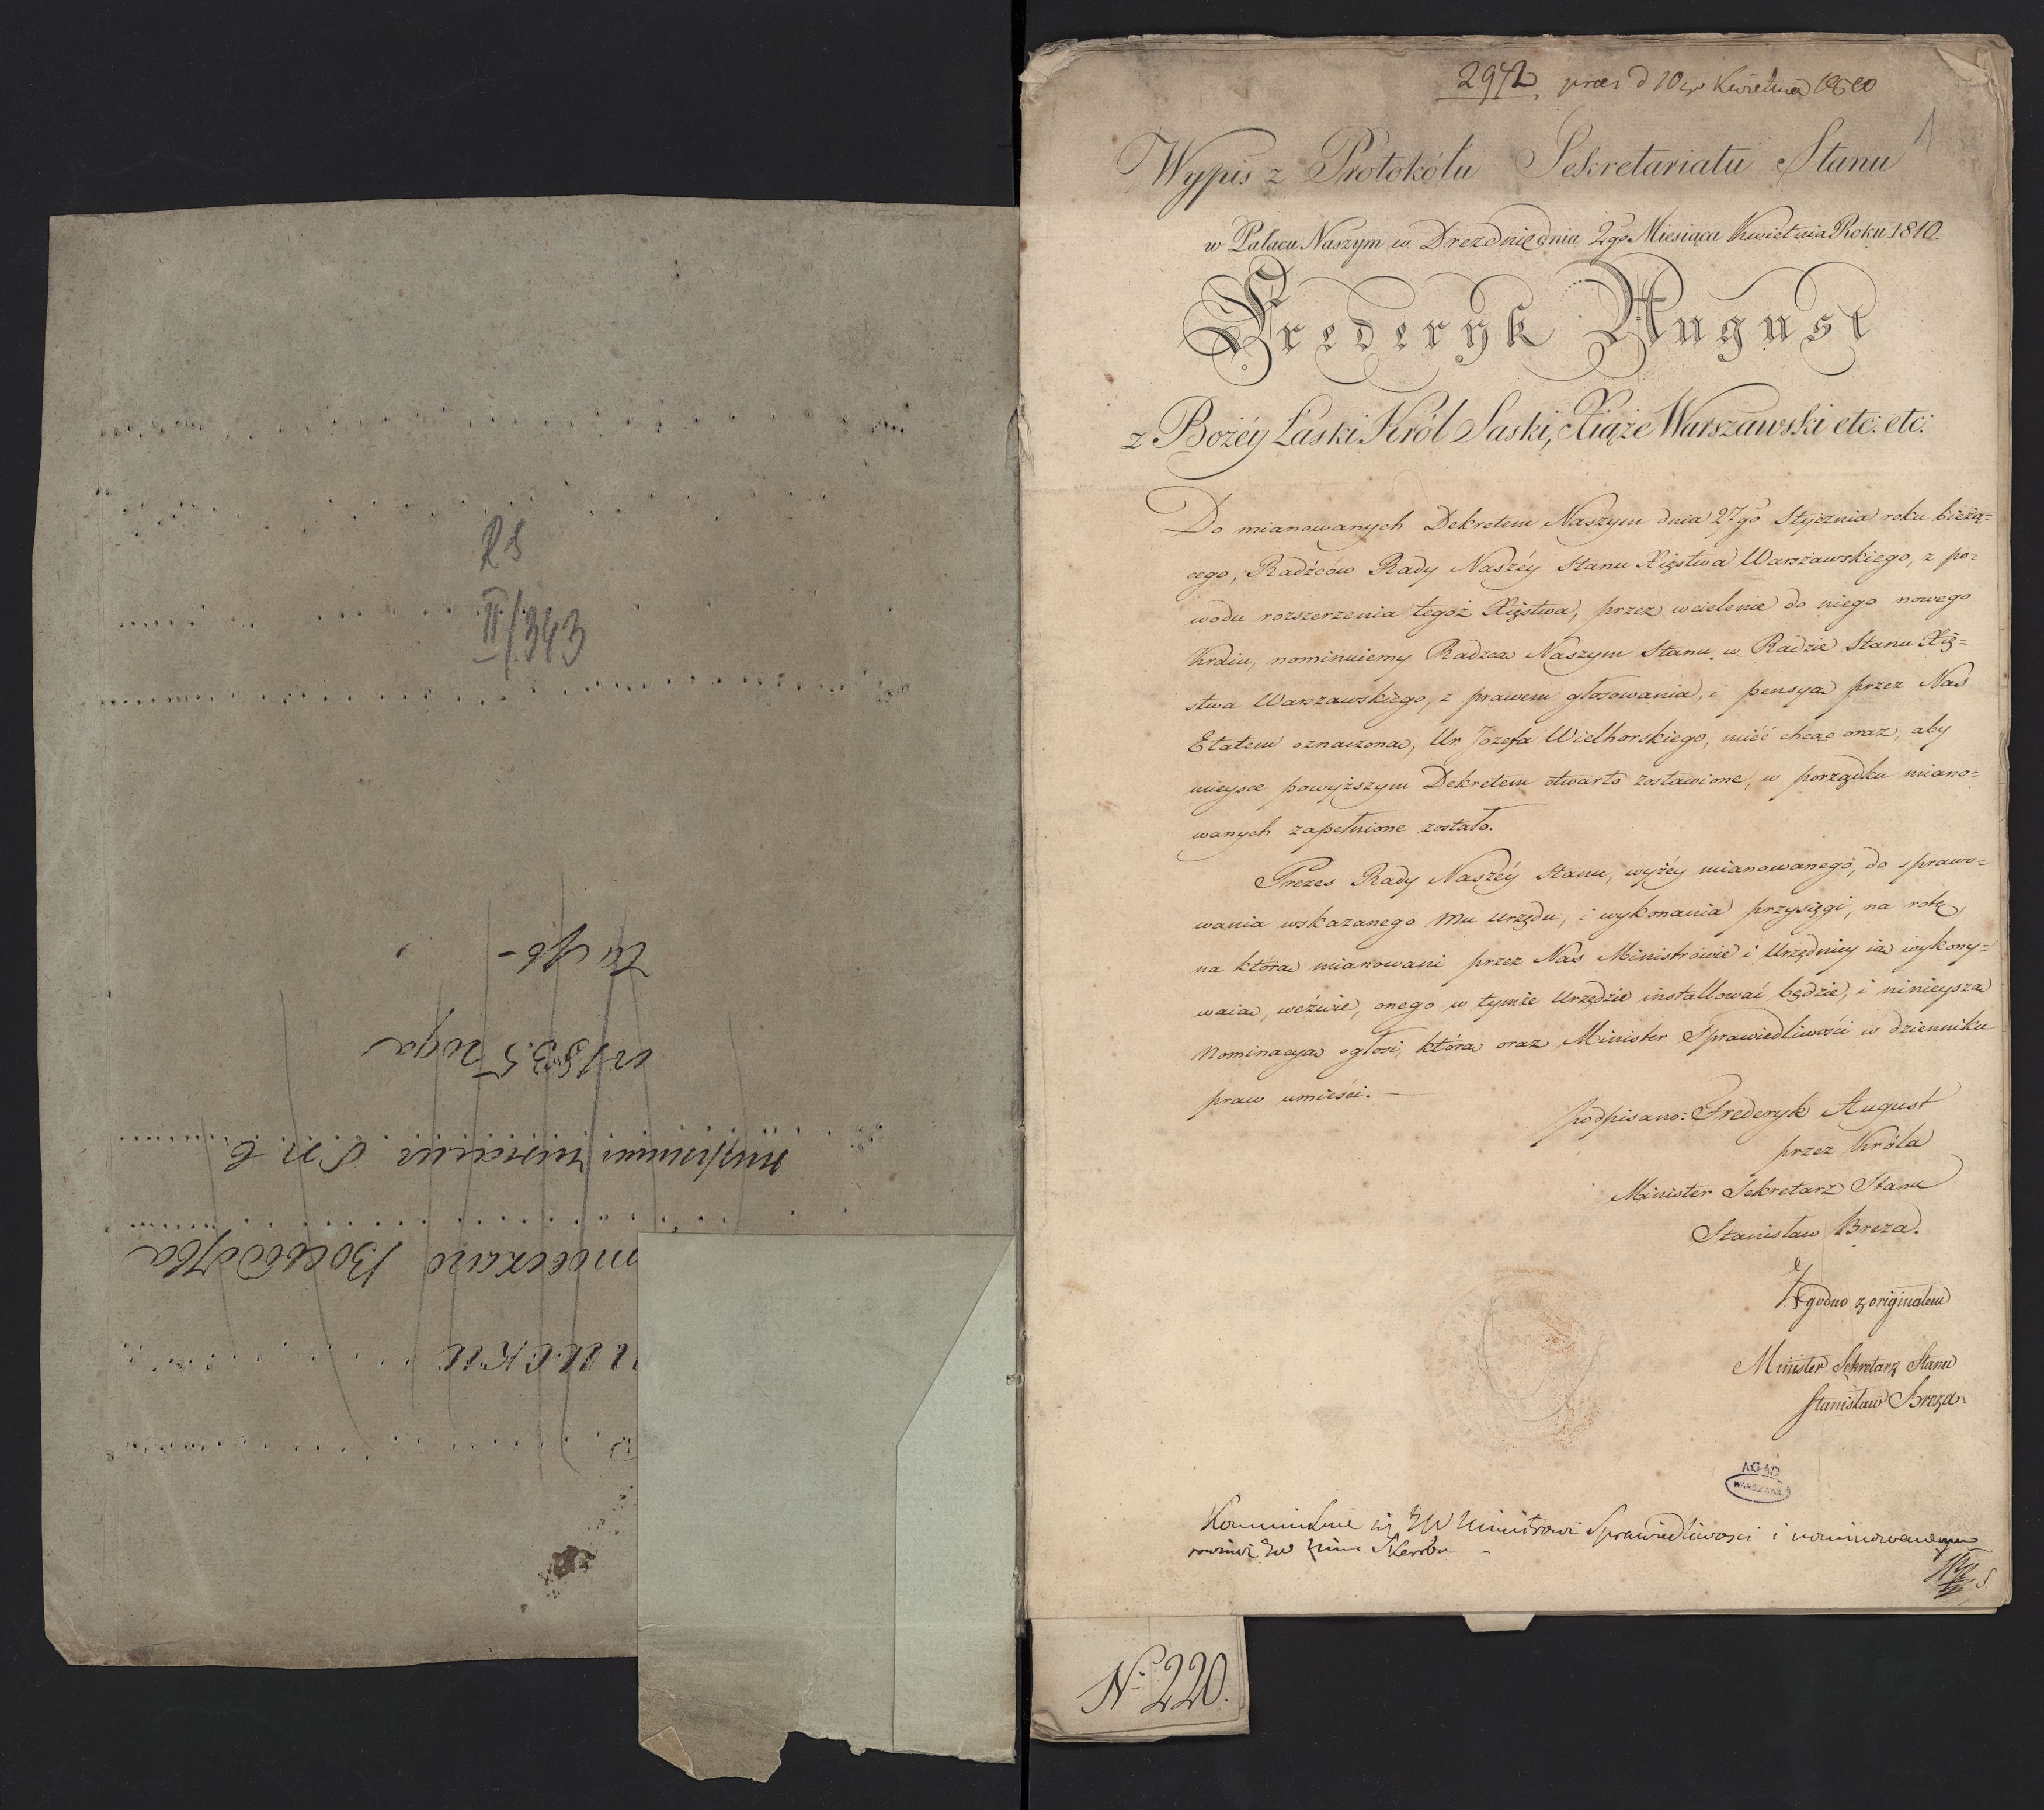 RS
II/343
в 1835 года
2972 praes d 10go Kwietnia 1810
1
Wypis z Protokółu Sekretariatu Stanu
w Pałacu Naszym w Dreznie dnia 2go Miesiąca Kwietnia Roku 1810.
Frederyk August
z Bożéy Łaski Król Saski, Xiąże Warszawski etc: etc:
Do mianowanych Dekretem Naszym dnia 27go Stycznia roku bieżą=
cego, Radźców Rady Naszéy Stanu Xięstwa Warszawskiego, z po=
wodu rozszerzenia tegoż Xięstwa, przez wcielenie do niego nowego
Kraiu, nominuiemy Radzcą Naszym Stanu w Radzie Stanu Xię=
stwa Warszawskiego, z prawem głosowania, i pensyą przez Nas
Etatem oznaczoną, Ur. Józefa Wielhorskiego, mieć chcąc oraz, aby
mieysce powyższym Dekretem otwarto zostawione, w porządku miano=
wanych zapełnione zostało.
Prezes Rady Naszéy Stanu, wyżéy mianowanego, do sprawo=
wania wskazanego mu urzędu, i wykonania przysięgi, na rotę,
na którą mianowani przez Nas Ministrowie i Urzędnicy ią wykony=
waią, weźwie, onego w tymże Urzędzie installować będzie, i ninieyszą
Nominacyą ogłosi, którą oraz Minister Sprawiedliwości w dzienniku
praw umieści. —
podpisano: Frederyk August
przez Króla
Minister Sekretarz Stanu
Stanisław Breza.
Zgodno z originałem
Minister Sekretarz Stanu
Stanisław Breza.
AGAD
WARSZAWA
Ministrowi Sprawiedliwosci i nominowanemu
Skarbu
No 220.